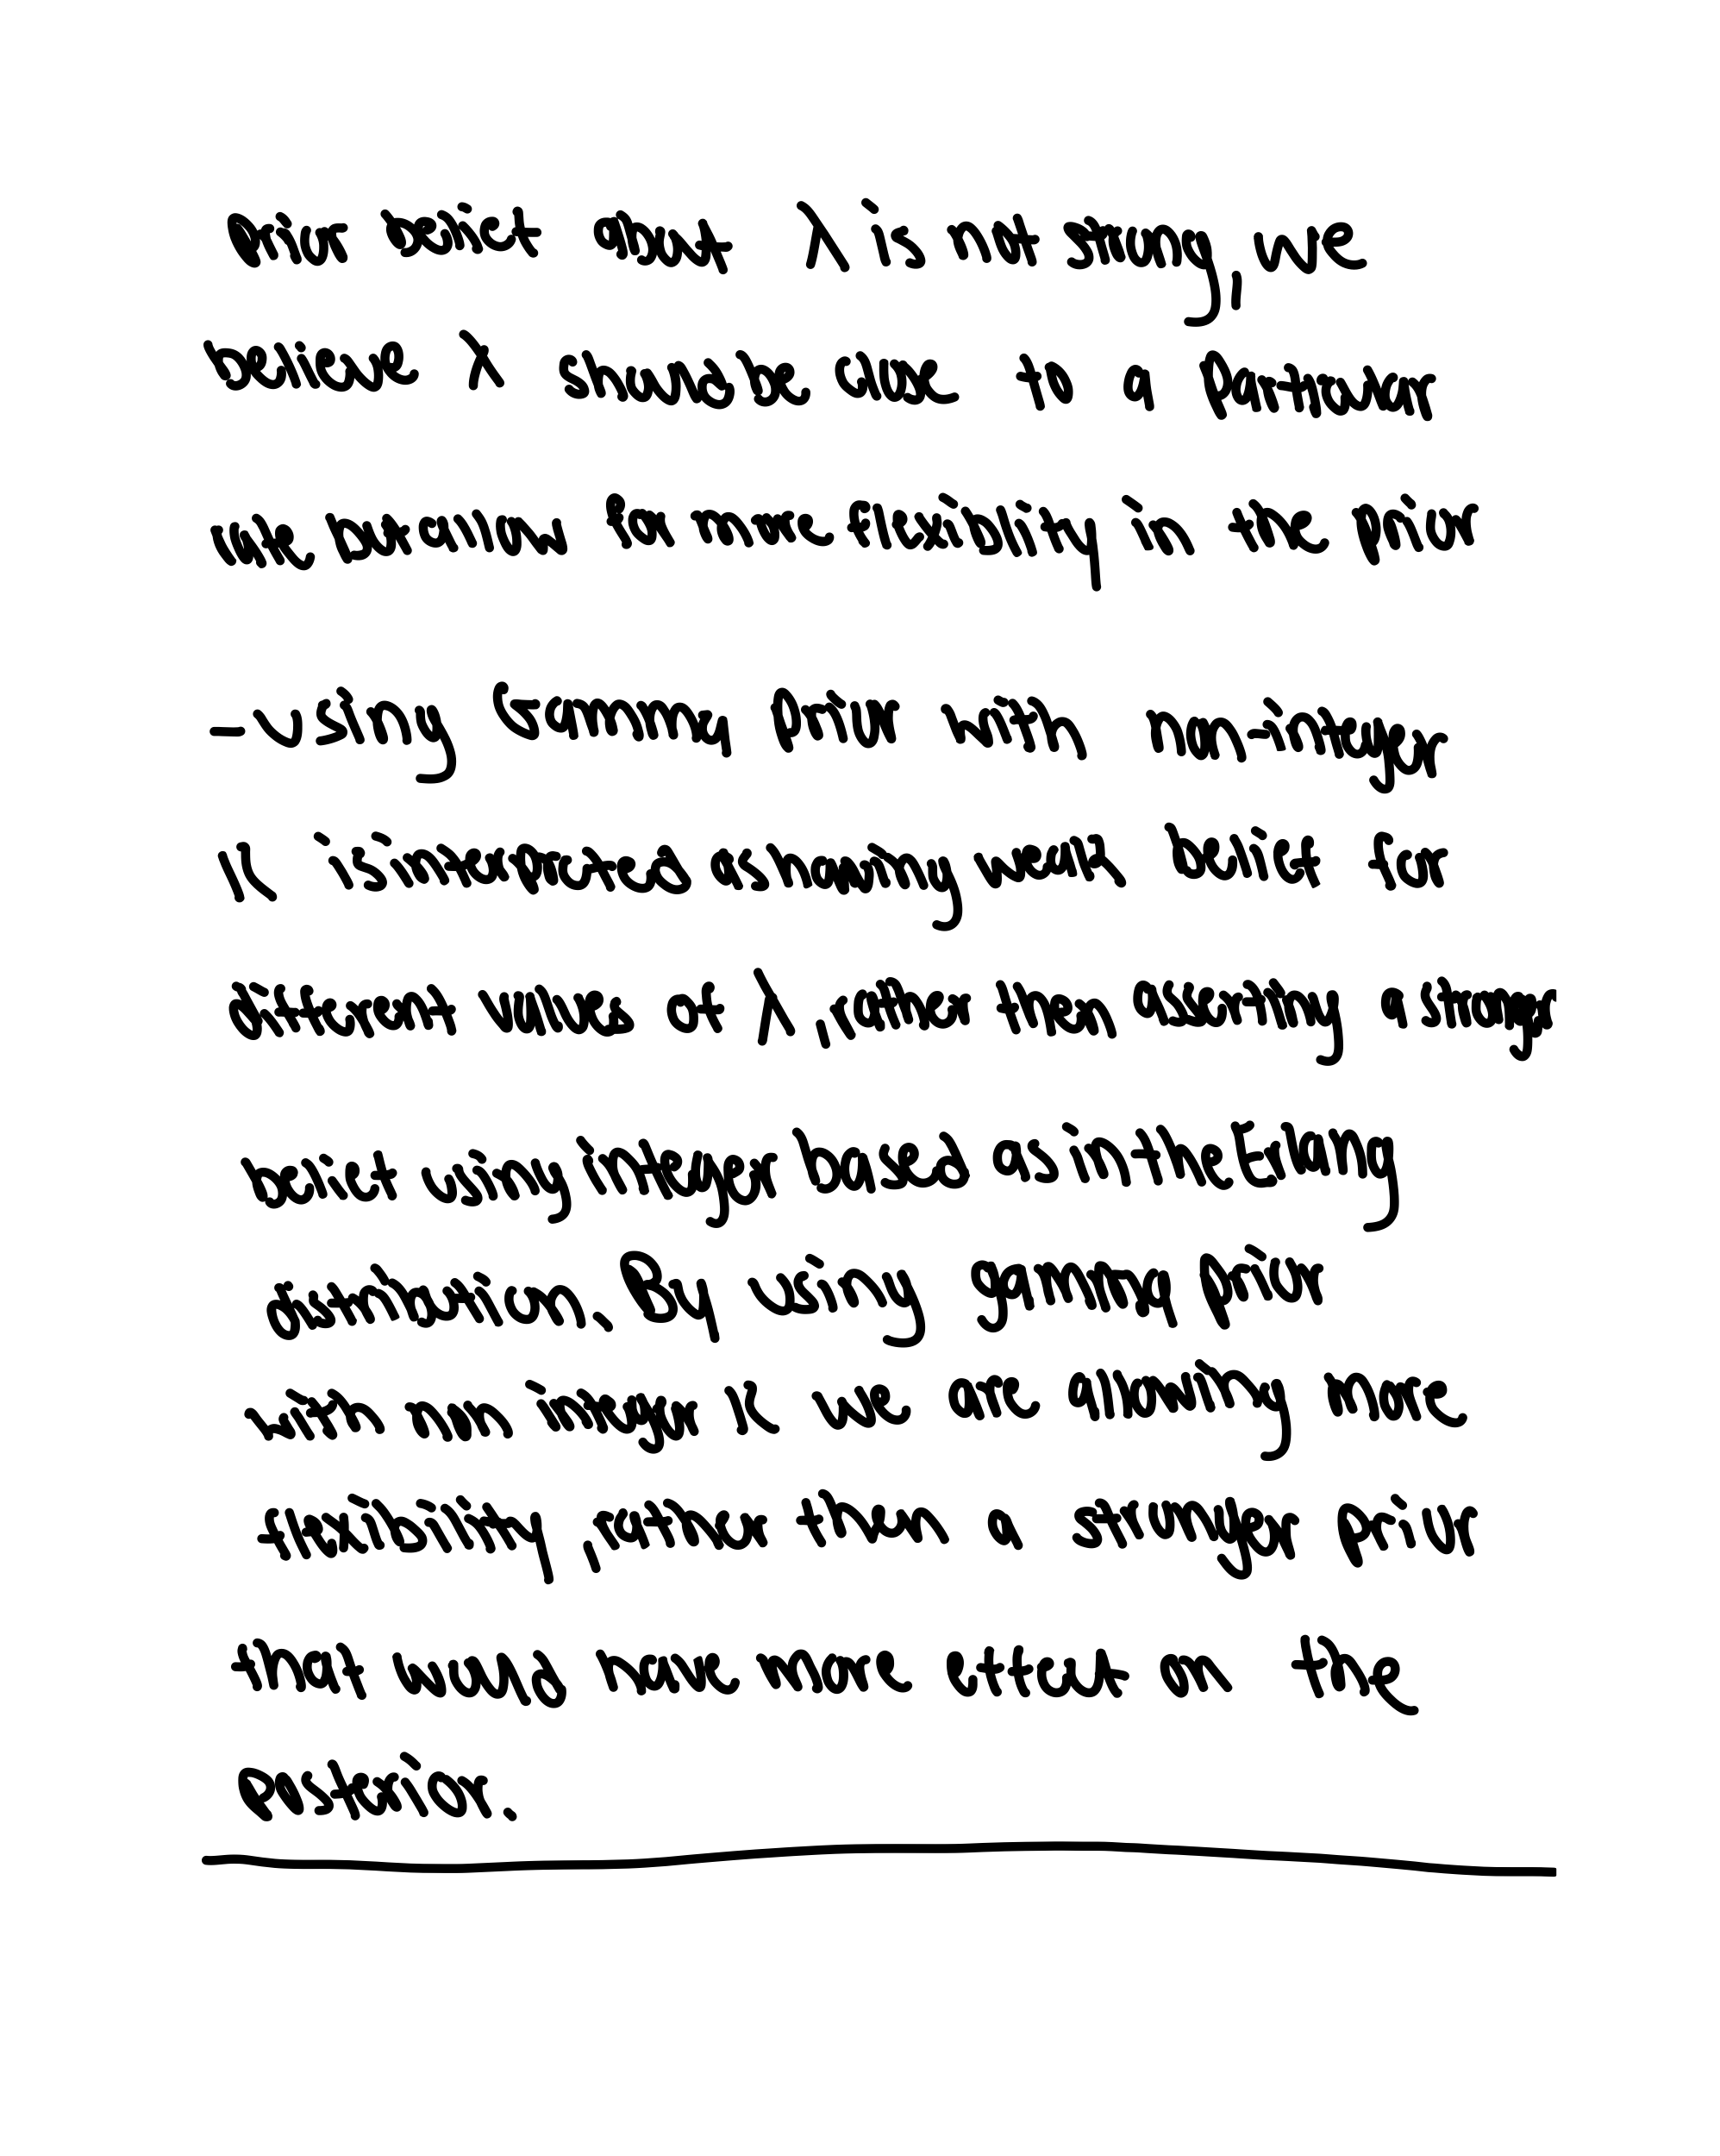 prior belief about λ is not strong, we
believe λ should be close to a particular
value however for more flexibility in the prior
- using Gamma prior with non-integer
K is interpreted as having weak belief for
different values of λ, rather than asserting a stronger
belief using integer based as in the Erlang
distribution. By using gamma prior
with non integer K we are allowing more
flexibility, rather then a stronger prior
that would have more affect on the
posterior.